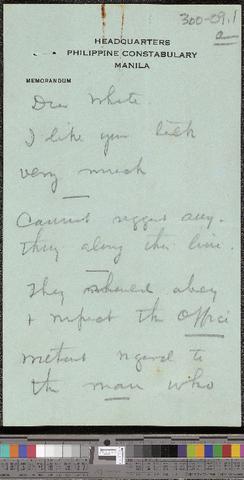 300-09.1
a
HEADQUARTERS
PHILIPPINE CONSTABULARY
MANILA
MEMORANDUM
Dear White.
I like your talk
very much
Cannot suggest any-
thing along this line.
They should obey
& respect the office
without regard to
the man who